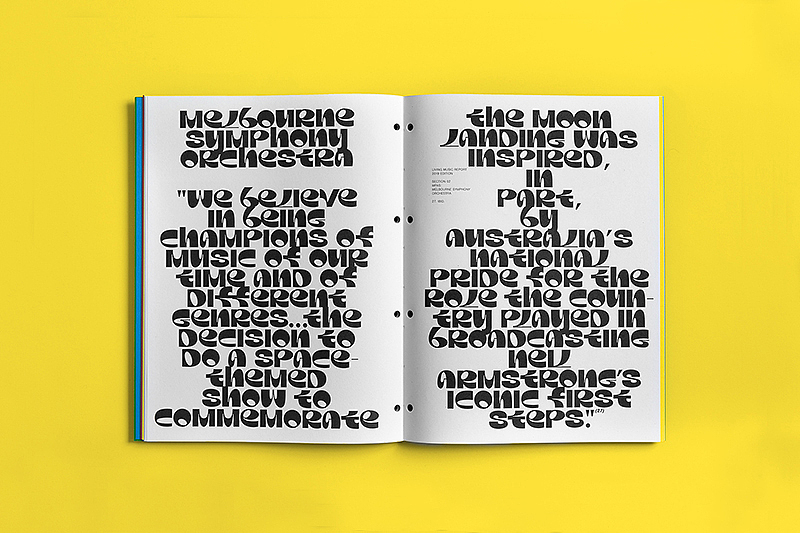 Melbourne
Symphony
Orchestra
"We believe
in being
champions of
music of our
time and of
different
genres...the
decision to
do a space-
themed
show to
commemorate
the moon
landing was
inspired,
in
part,
by
Australia's
national
pride for the
role the coun-
try played in
broadcasting
Neil
Armstrong's
iconic first
steps."(27)
LIVING MUSIC REPORT
EDITION
SECTION 02
MELBOURNE SYMPHONY
ORCHESTRA